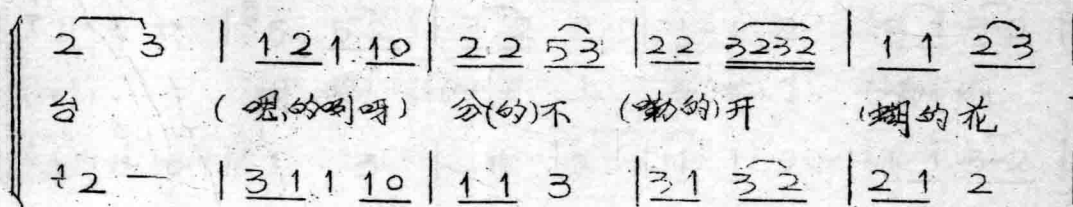 2 3 | 1 2 1 1 0 | 2 2 5 3 | 2 2 3 2 3 2 | 1 1 2 3 |
台 (嗯的哟呀) 分(的)不 (嘞的)开 (蝴的花
2 — | 3 1 1 1 0 | 1 1 3 | 3 1 3 2 | 2 1 2